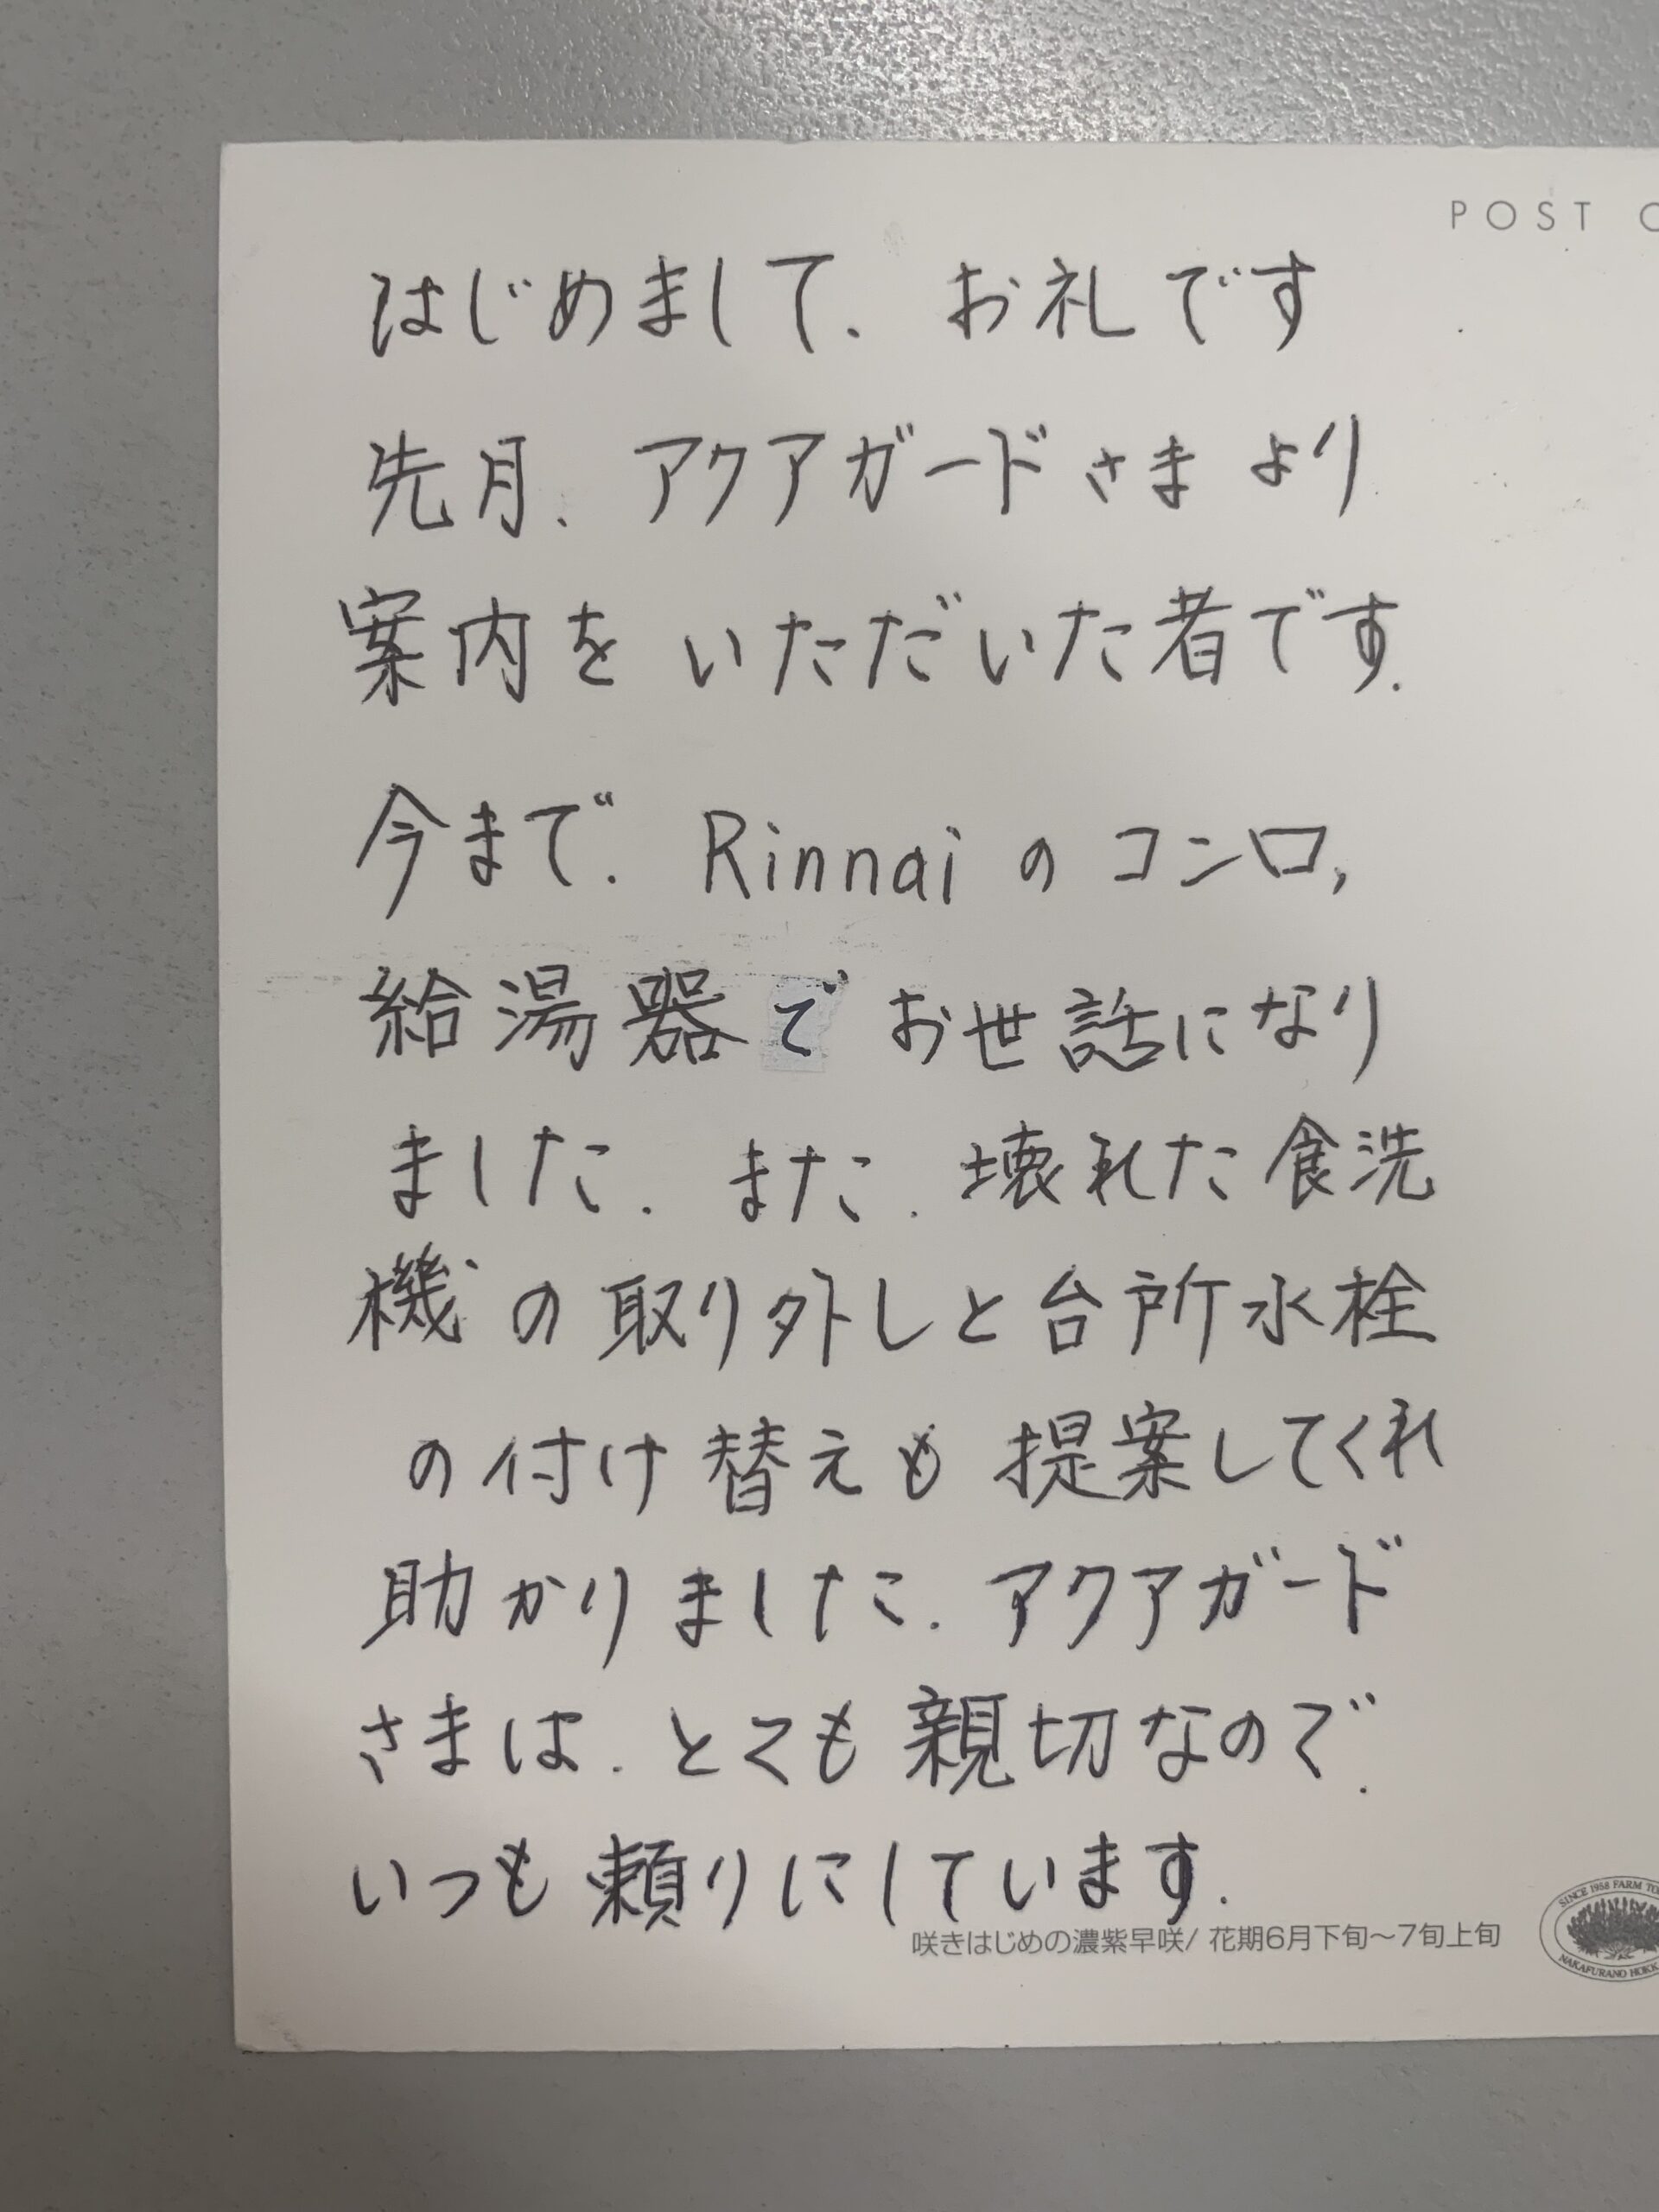 POST C
はじめまして、お礼です
先月、アクアガードさまより
案内をいただいた者です。
今まで、Rinnaiのコンロ,
給湯器でお世話になり
ました。また、壊れた食洗
機の取り外しと台所水栓
の付け替えも提案してくれ
助かりました。アクアガード
さまは、とても親切なので、
いつも頼りにしています。
咲きはじめの濃紫早咲/ 花期6月下旬〜7旬上旬
SINCE 1958 FARM TO
NAKAFURANO HOKK